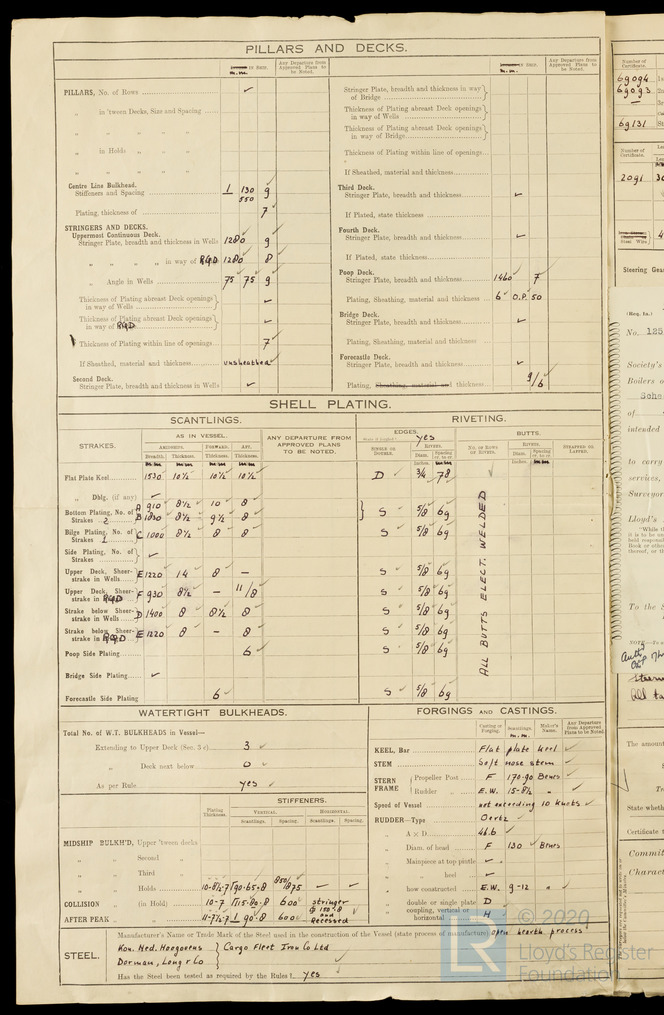 PILLARS AND DECKS.
Any Departure from Approved Plans to be Noted.
Any Departure from Approved Plans to be Noted.
PILLARS, No. of Rows ✓
„ in 'tween Decks, Size and Spacing
„ „ „ „
„ in Holds „ „
„ „ „ „
Centre Line Bulkhead.
Stiffeners and Spacing 130 550 9
Plating, thickness of 7
STRINGERS AND DECKS.
Uppermost Continuous Deck.
Stringer Plate, breadth and thickness in Wells 1280 9
„ „ „ „ in way of RQD 1280 8
„ Angle in Wells 75 75 9
Thickness of Plating abreast Deck openings in way of Wells
Thickness of Plating abreast Deck openings in way of RQD
Thickness of Plating within line of openings 7
If Sheathed, material and thickness unsheathed
Second Deck.
Stringer Plate, breadth and thickness in Wells
Stringer Plate, breadth and thickness in way of Bridge
Thickness of Plating abreast Deck openings in way of Wells
Thickness of Plating abreast Deck openings in way of Bridge
Thickness of Plating within line of openings
If Sheathed, material and thickness
Third Deck.
Stringer Plate, breadth and thickness
If Plated, state thickness
Fourth Deck.
Stringer Plate, breadth and thickness
If Plated, state thickness
Poop Deck.
Stringer Plate, breadth and thickness 1460 7
Plating, Sheathing, material and thickness 6 O.P. 50
Bridge Deck.
Stringer Plate, breadth and thickness
Plating, Sheathing, material and thickness
Forecastle Deck.
Stringer Plate, breadth and thickness
Plating, Sheathing, material and thickness 9/6
SHELL PLATING.
SCANTLINGS. RIVETING.
STRAKES. AS IN VESSEL. ANY DEPARTURE FROM APPROVED PLANS TO BE NOTED. EDGES. yes BUTTS.
AMIDSHIPS. FORWARD. AFT. SINGLE OR DOUBLE. RIVETS. NO. OF ROWS OF RIVETS. RIVETS. STRAPPED OR LAPPED.
Breadth. Thickness. Thickness. Thickness. Diam. Spacing cr. to cr. Diam. Spacing cr. to cr.
Flat Plate Keel 1530 10½ 10½ 10½ D ¾ 78
„ Dblg. (if any)
Bottom Plating, No. of Strakes 2 A 910 8½ 10 8
B 1830 8½ 9½ 8 S 5/8 69
Bilge Plating, No. of Strakes 1 C 1000 8½ 8 8 S 5/8 69
Side Plating, No. of Strakes
Upper Deck, Sheerstrake in Wells E 1220 14 8 – S 5/8 69
Upper Deck, Sheerstrake in RQD F 930 8½ – 11/8 S 5/8 69
Strake below Sheerstrake in Wells D 1400 8 8½ 8 S 5/8 69
Strake below Sheerstrake in RQD E 1220 8 – 8 S 5/8 69
Poop Side Plating 6
Bridge Side Plating
Forecastle Side Plating 6 S 5/8 69
ALL BUTTS ELECT. WELDED
WATERTIGHT BULKHEADS.
Total No. of W.T. BULKHEADS in Vessel—
Extending to Upper Deck (Sec. 3 c) 3
„ Deck next below 0
As per Rule yes
STIFFENERS.
Plating Thickness. VERTICAL. HORIZONTAL.
Scantlings. Spacing. Scantlings. Spacing.
MIDSHIP BULKH'D, Upper 'tween decks
„ „ Second „
„ „ Third „
„ „ Holds 10-8½-7 90·65·8 850/875 – –
COLLISION „ (in Hold) 10-7 115·80·8 600 stringer
AFTER PEAK „ „ 11-7½-7 90·8 600 and Recessed
FORGINGS AND CASTINGS.
Casting or Forging. Scantlings. Maker's Name. Any Departure from Approved Plans to be Noted.
KEEL, Bar Flat plate keel
STEM Soft nose stem
STERN FRAME Propeller Post F 170·90
Rudder „ E.W. 15-8½ „
Speed of Vessel not exceeding 10 knots
RUDDER—Type Oertz
„ A × D 46.6
„ Diam. of head F 130
„ Mainpiece at top pintle
„ „ heel
„ how constructed E.W. 9-12 „
„ double or single plate D
„ coupling, vertical or horizontal H
STEEL. Manufacturer's Name or Trade Mark of the Steel used in the construction of the Vessel (state process of manufacture) open hearth process
Kon. Ned. Hoogovens Cargo Fleet Iron Co Ltd
Dorman, Long & Co
Has the Steel been tested as required by the Rules? yes
Number of Certificate.
69094
69093
69131
Number of Certificate.
2091
Steel Wire
Steering Gear
No. 125
Society's
Boilers o
Scho
of
intended
to carry
services,
Surveyor
Lloyd's
To the S
The amoun
State wheth
Certificate t
Commit
Charact
© 2020
LR
Lloyd's Register
Foundation